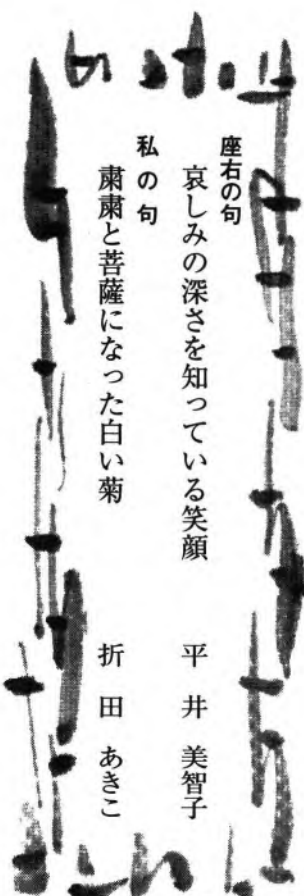 座右の句
哀しみの深さを知っている笑顔　平井美智子
私の句
粛粛と菩薩になった白い菊　折田あきこ